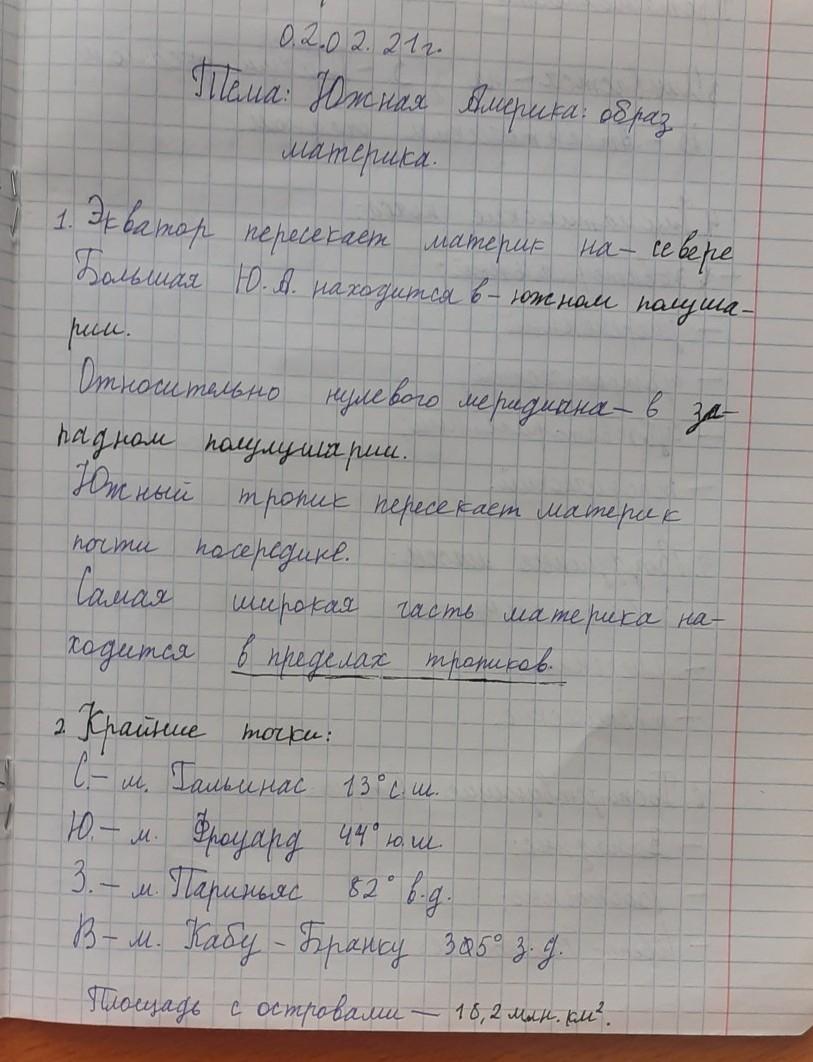 02.02.21г.
Тема: Южная Америка: образ
материка.
1. Экватор пересекает материк на – севере
Большая Ю.А. находится в – южном полуша-
рии.
Относительно нулевого меридиана – в за-
падном полулушарии.
Южный тропик пересекает материк
почти посередине.
Самая широкая часть материка на-
ходится в пределах тропиков.
2. Крайние точки:
С. – м. Гальинас 13° с.ш.
Ю. – м. Фроуард 44° ю.ш.
З. – м. Париньяс 82° в.д.
В – м. Кабу - Бранку з.д.
Площадь с островами – 18,2 млн. км².